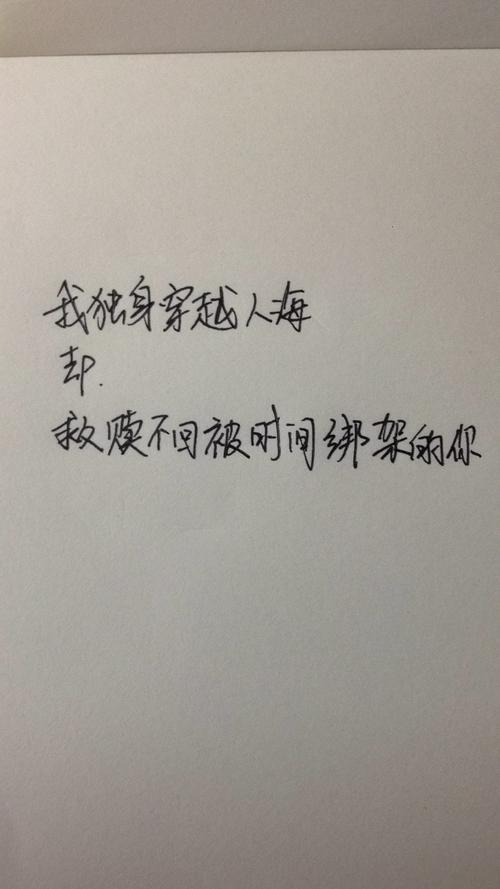 我独身穿越人海
却.
救赎不回被时间绑架的你